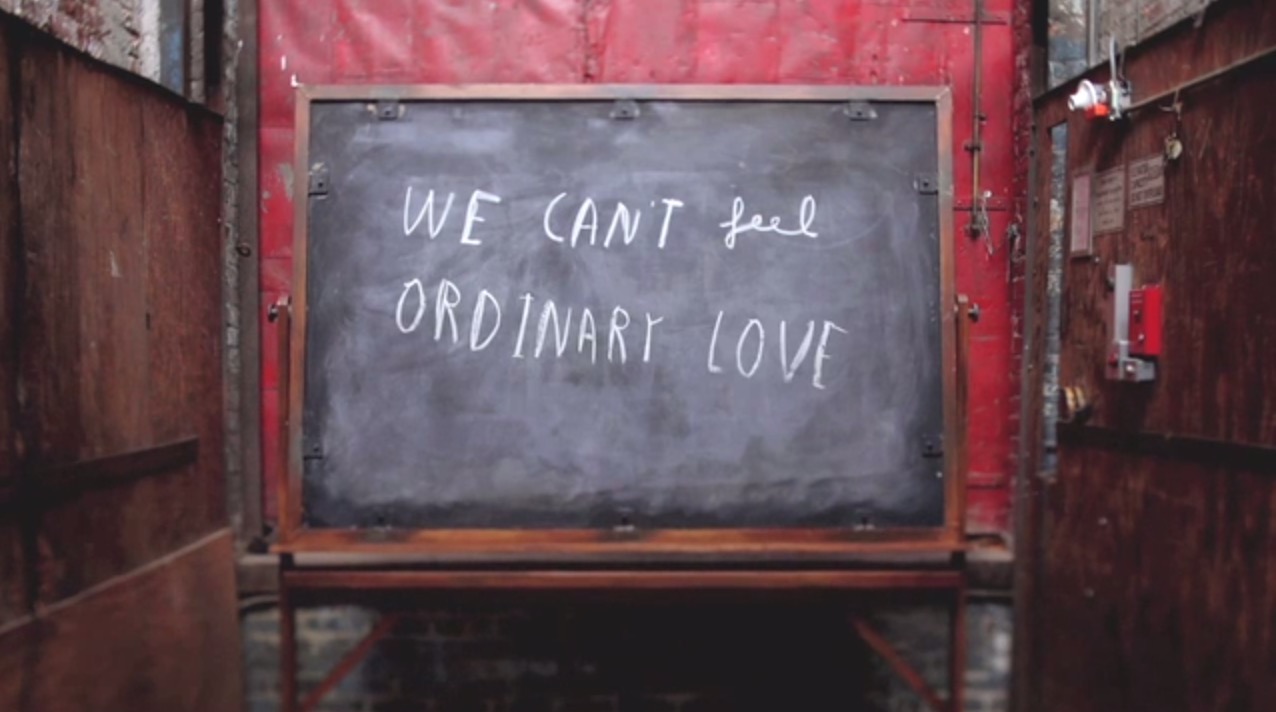 WE CAN'T feel
ORDINARY LOVE